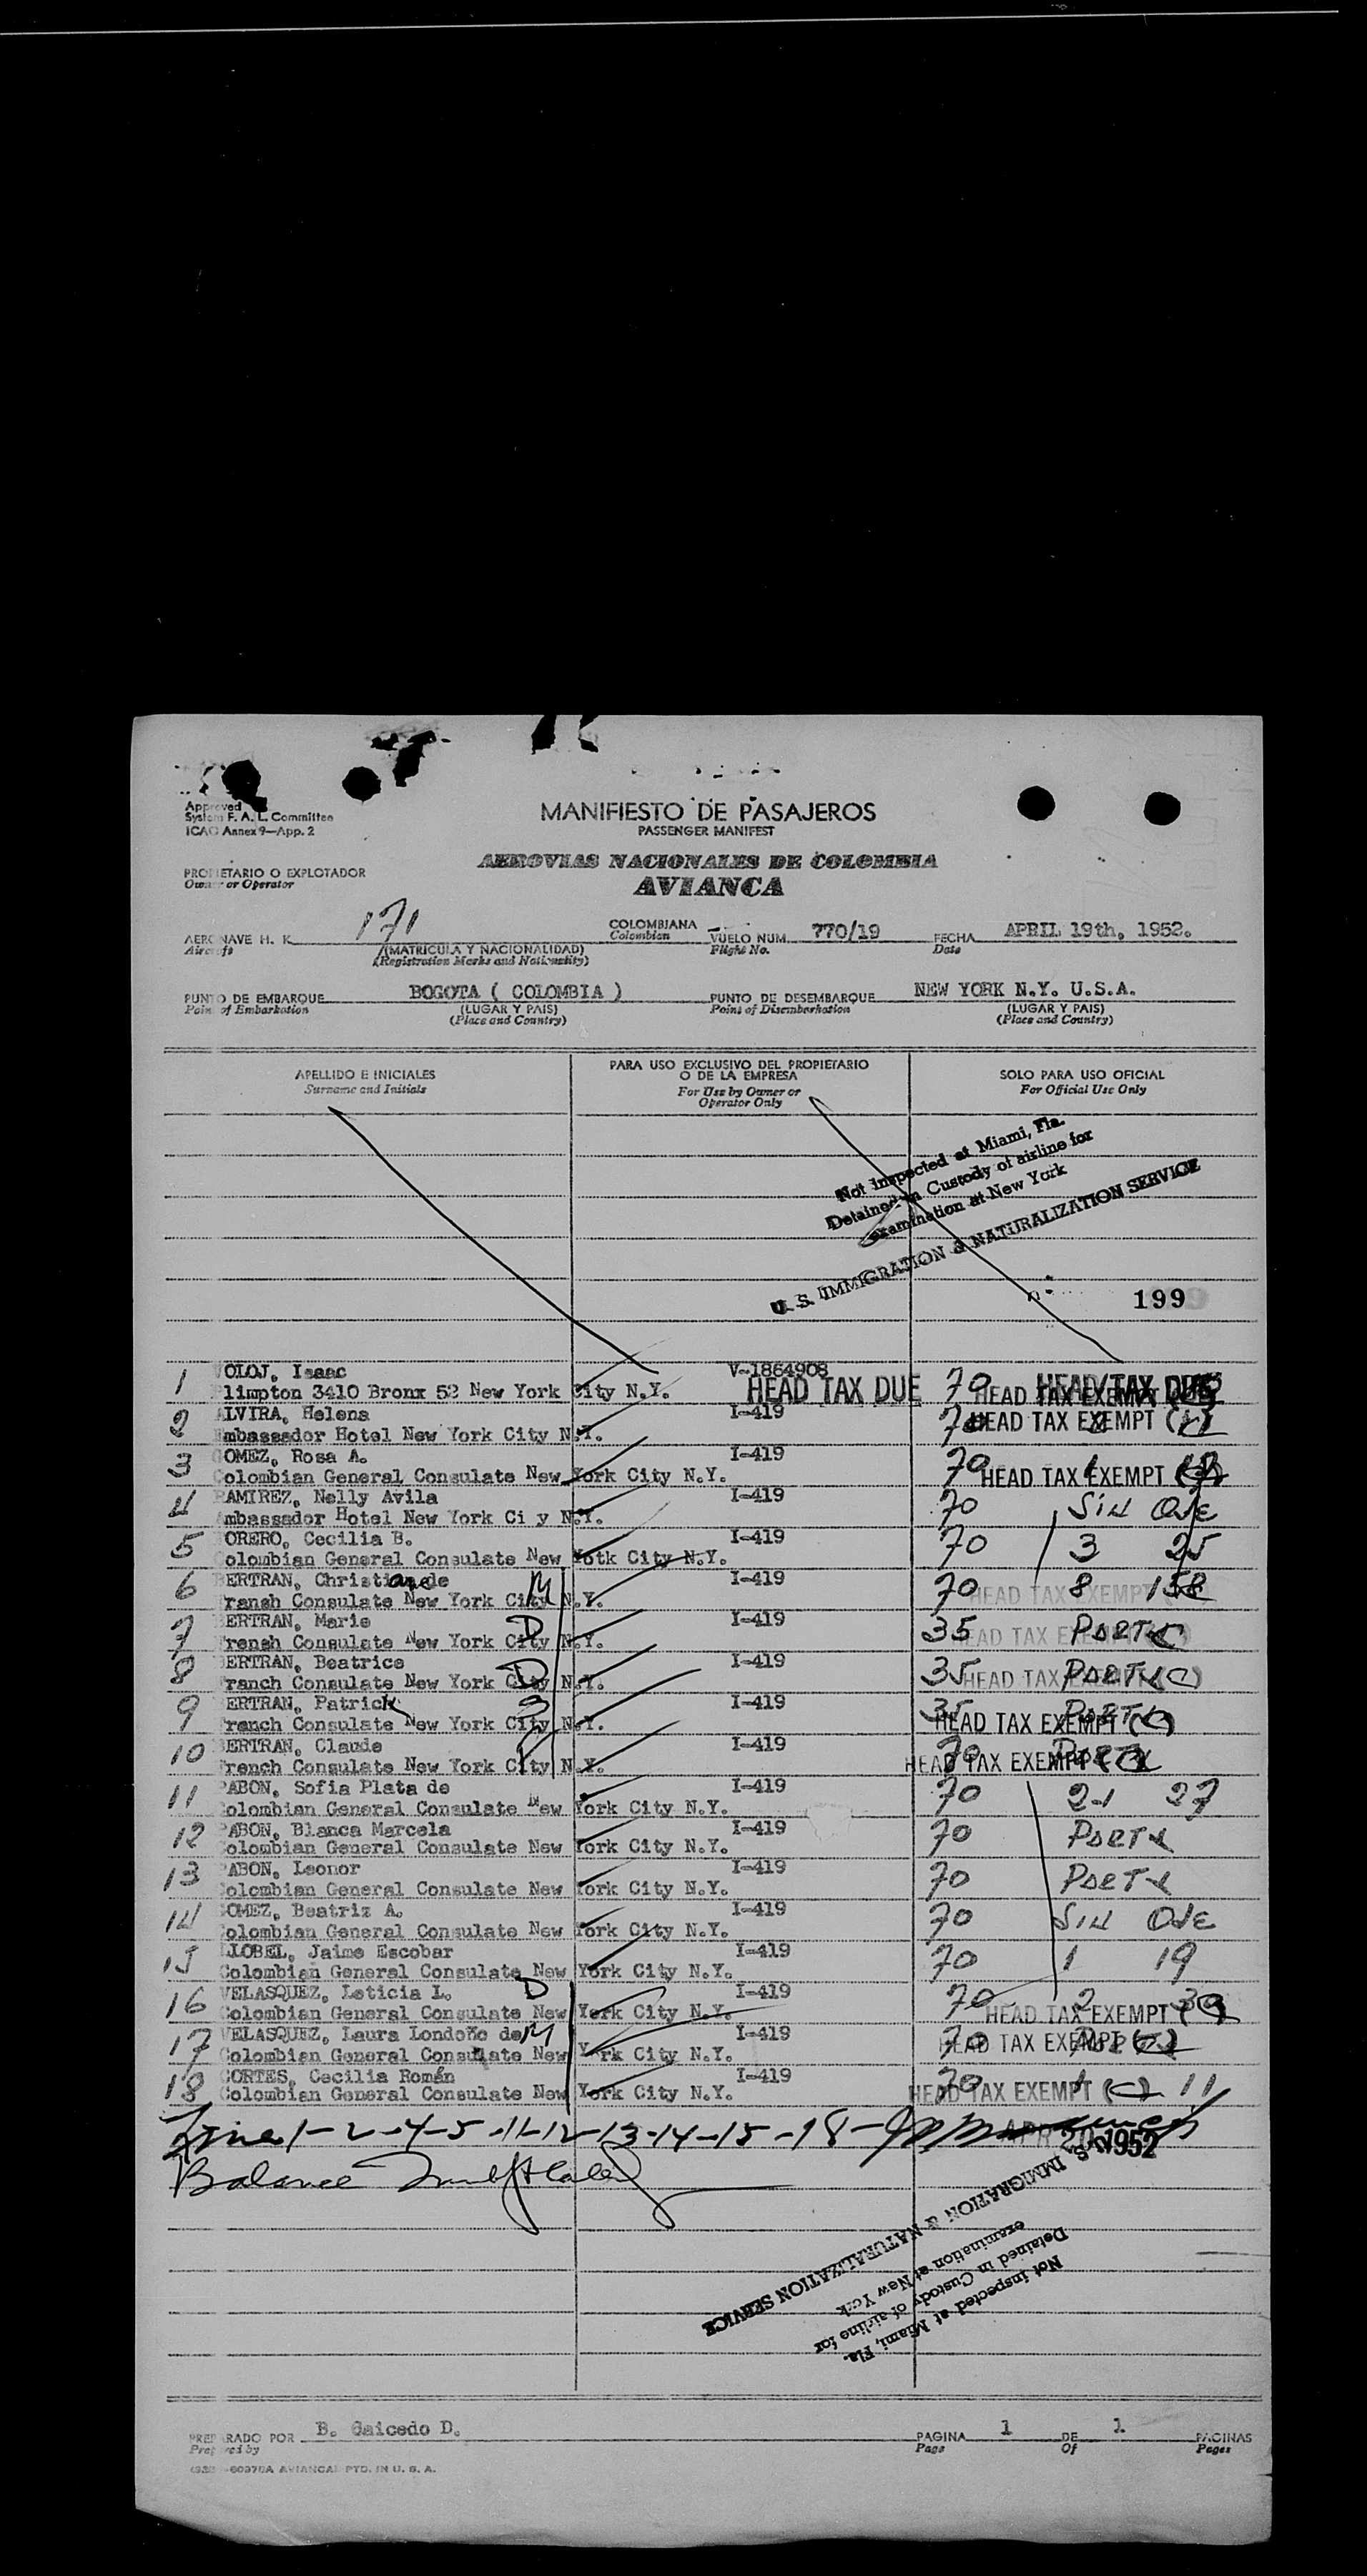 Approved
System F. A. L. Committee
ICAO Annex 9—App. 2
MANIFIESTO DE PASAJEROS
PASSENGER MANIFEST
AEROVIAS NACIONALES DE COLOMBIA
AVIANCA
PROPIETARIO O EXPLOTADOR
Owner or Operator
AERONAVE H. K. 171 COLOMBIANA VUELO NUM. 770/19 FECHA APRIL 19th, 1952.
Aircraft (MATRICULA Y NACIONALIDAD) Colombian Flight No. Date
(Registration Marks and Nationality)
PUNTO DE EMBARQUE BOGOTA ( COLOMBIA ) PUNTO DE DESEMBARQUE NEW YORK N.Y. U.S.A.
Point of Embarkation (LUGAR Y PAIS) Point of Disembarkation (LUGAR Y PAIS)
(Place and Country) (Place and Country)
APELLIDO E INICIALES PARA USO EXCLUSIVO DEL PROPIETARIO O DE LA EMPRESA SOLO PARA USO OFICIAL
Surname and Initials For Use by Owner or Operator Only For Official Use Only
Not Inspected at Miami, Fla.
Detained in Custody of airline for
examination at New York
U. S. IMMIGRATION & NATURALIZATION SERVICE
199
1 VOLOJ, Isaac V-1864908
limpton 3410 Bronx 52 New York City N.Y. HEAD TAX DUE 70 HEAD TAX EXEMPT HEAD TAX DUE
2 ALVIRA, Helena I-419
mbassador Hotel New York City N.Y. 70 HEAD TAX EXEMPT
3 GOMEZ, Rosa A. I-419
Colombian General Consulate New York City N.Y. 70 1 HEAD TAX EXEMPT
4 RAMIREZ, Nelly Avila I-419
mbassador Hotel New York Ci y N.Y. 70 SIN
5 ORERO, Cecilia B. I-419
Colombian General Consulate New Yotk City N.Y. 70 3 25
6 BERTRAN, Christiane de M I-419
Fransh Consulate New York City N.Y. 70 8 158 HEAD TAX EXEMPT
7 BERTRAN, Marie D I-419
French Consulate New York City N.Y. 35 Party HEAD TAX EXEMPT
8 BERTRAN, Beatrice D I-419
Franch Consulate New York City N.Y. 35 Party HEAD TAX EXEMPT
9 BERTRAN, Patrick I-419
French Consulate New York City N.Y. 35 Party HEAD TAX EXEMPT
10 BERTRAN, Claude I-419
French Consulate New York City N.Y. 70 Party HEAD TAX EXEMPT
11 PABON, Sofia Plata de I-419
Colombian General Consulate New York City N.Y. 70 21 27
12 PABON, Blanca Marcela I-419
Colombian General Consulate New York City N.Y. 70 Party
13 PABON, Leonor I-419
Colombian General Consulate New York City N.Y. 70 Party
14 GOMEZ, Beatriz A. I-419
Colombian General Consulate New York City N.Y. 70 SIN
15 LLOBEL, Jaime Escobar I-419
Colombian General Consulate New York City N.Y. 70 1 19
16 VELASQUEZ, Leticia L. D I-419
Colombian General Consulate New York City N.Y. 70 2 HEAD TAX EXEMPT
17 VELASQUEZ, Laura Londoño de M I-419
Colombian General Consulate New York City N.Y. 70 HEAD TAX EXEMPT
18 CORTES, Cecilia Román I-419
Colombian General Consulate New York City N.Y. 70 1 11 HEAD TAX EXEMPT
Lines 1-2-4-5-11-12-13-14-15-18- APR 20 1952
Balance
U. S. IMMIGRATION & NATURALIZATION SERVICE
examination at New York
Detained in Custody of airline for
Not Inspected at Miami, Fla.
PREPARADO POR B. Caicedo D. PAGINA 1 DE 1 PAGINAS
Prepared by Page Of Pages
60370A AVIANCA PTD. IN U. S. A.